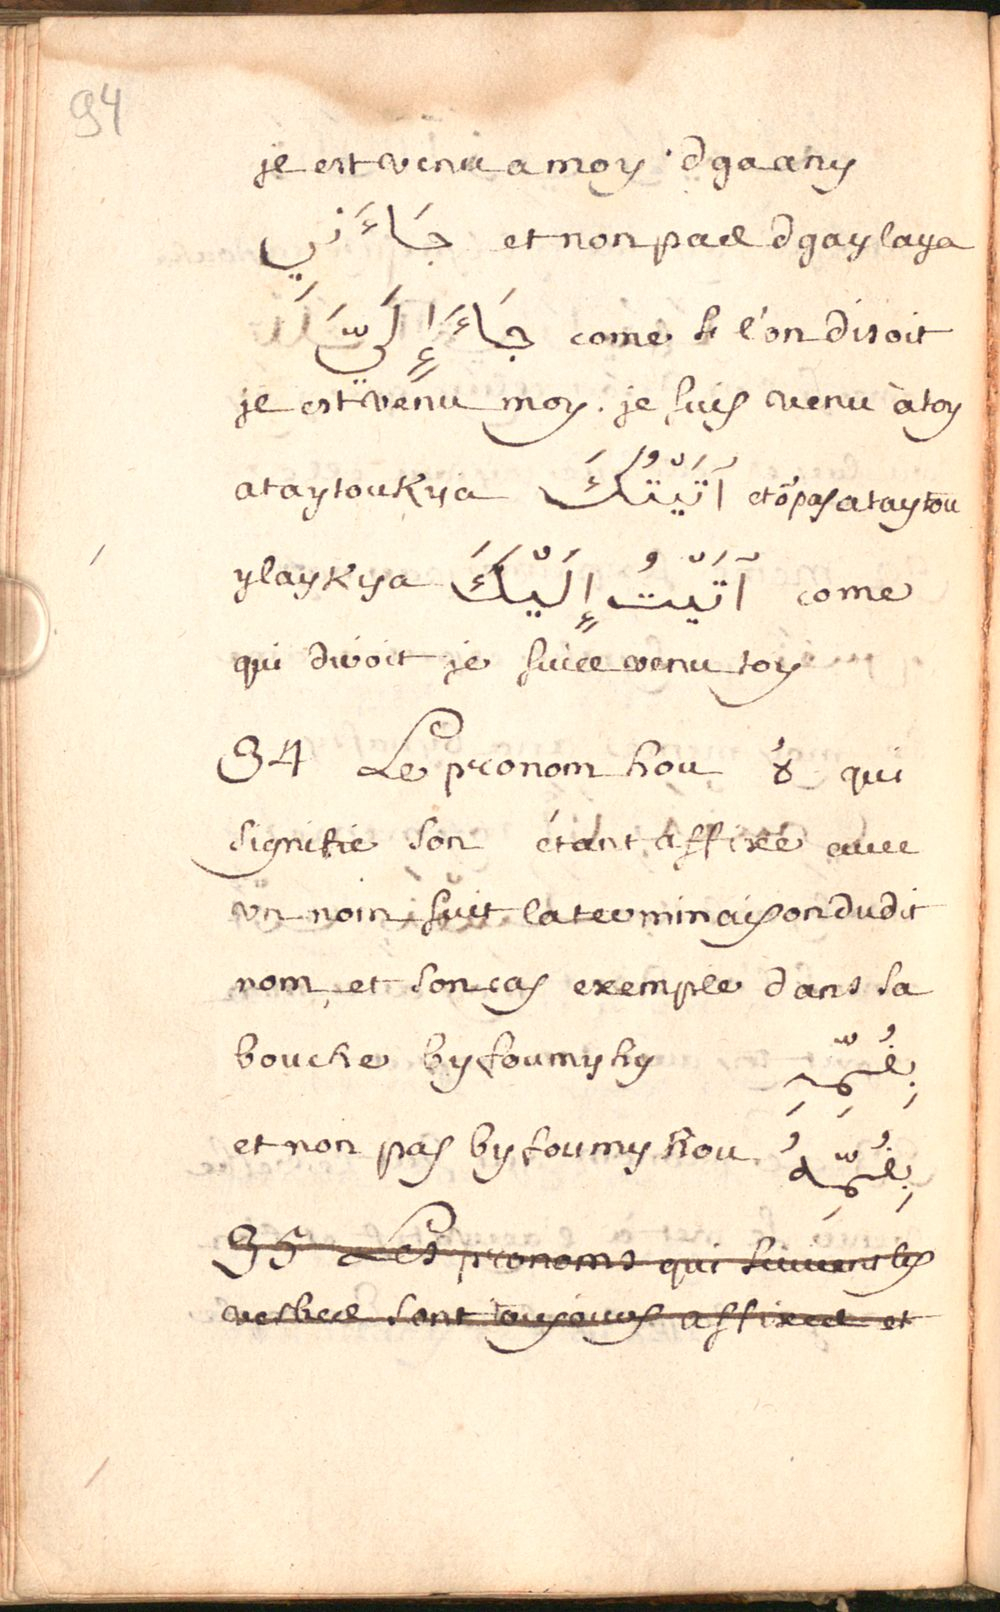 94
je est venu a moy · dgaany
جَاءَنِي et non pas dgaylaya
جَاءَ إِلَيَّ come si l'on disoit
je est venu moy. je suis venu à toy
ataytoukya آتَيْتُكَ et õ pas ataytou
ylaykya آتَيْتُ إِلَيْكَ come
qui diroit je suis venu toy
34 Le pronom hou هُ qui
signifie son étant affixé avec
un nom, suit la terminaison dudit
nom, et son cas exemple dans sa
bouche byfoumyhy بِفُمِّهِ
et non pas byfoumyhou بِفُمِّهُ
35 Les pronoms qui suivent les
verbes sont toujours affixes et